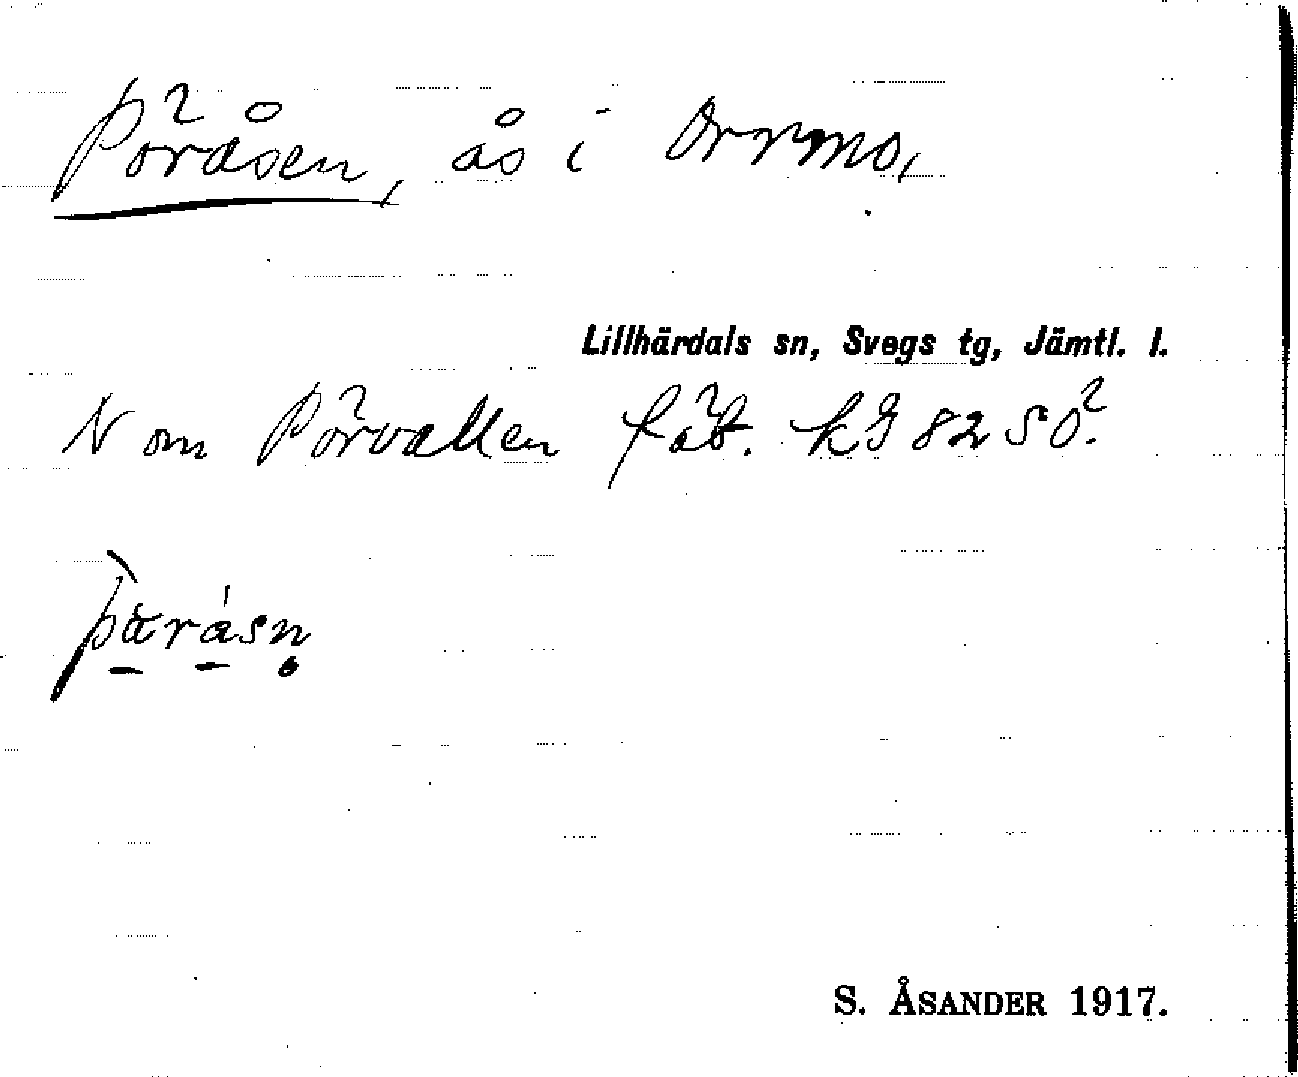 Poråsen, ås i Orrmo,
Lillhärdals sn, Svegs tg, Jämtl. l.
N om Porvallen fäb. kg 82 SO.
S. ÅSANDER 1917.